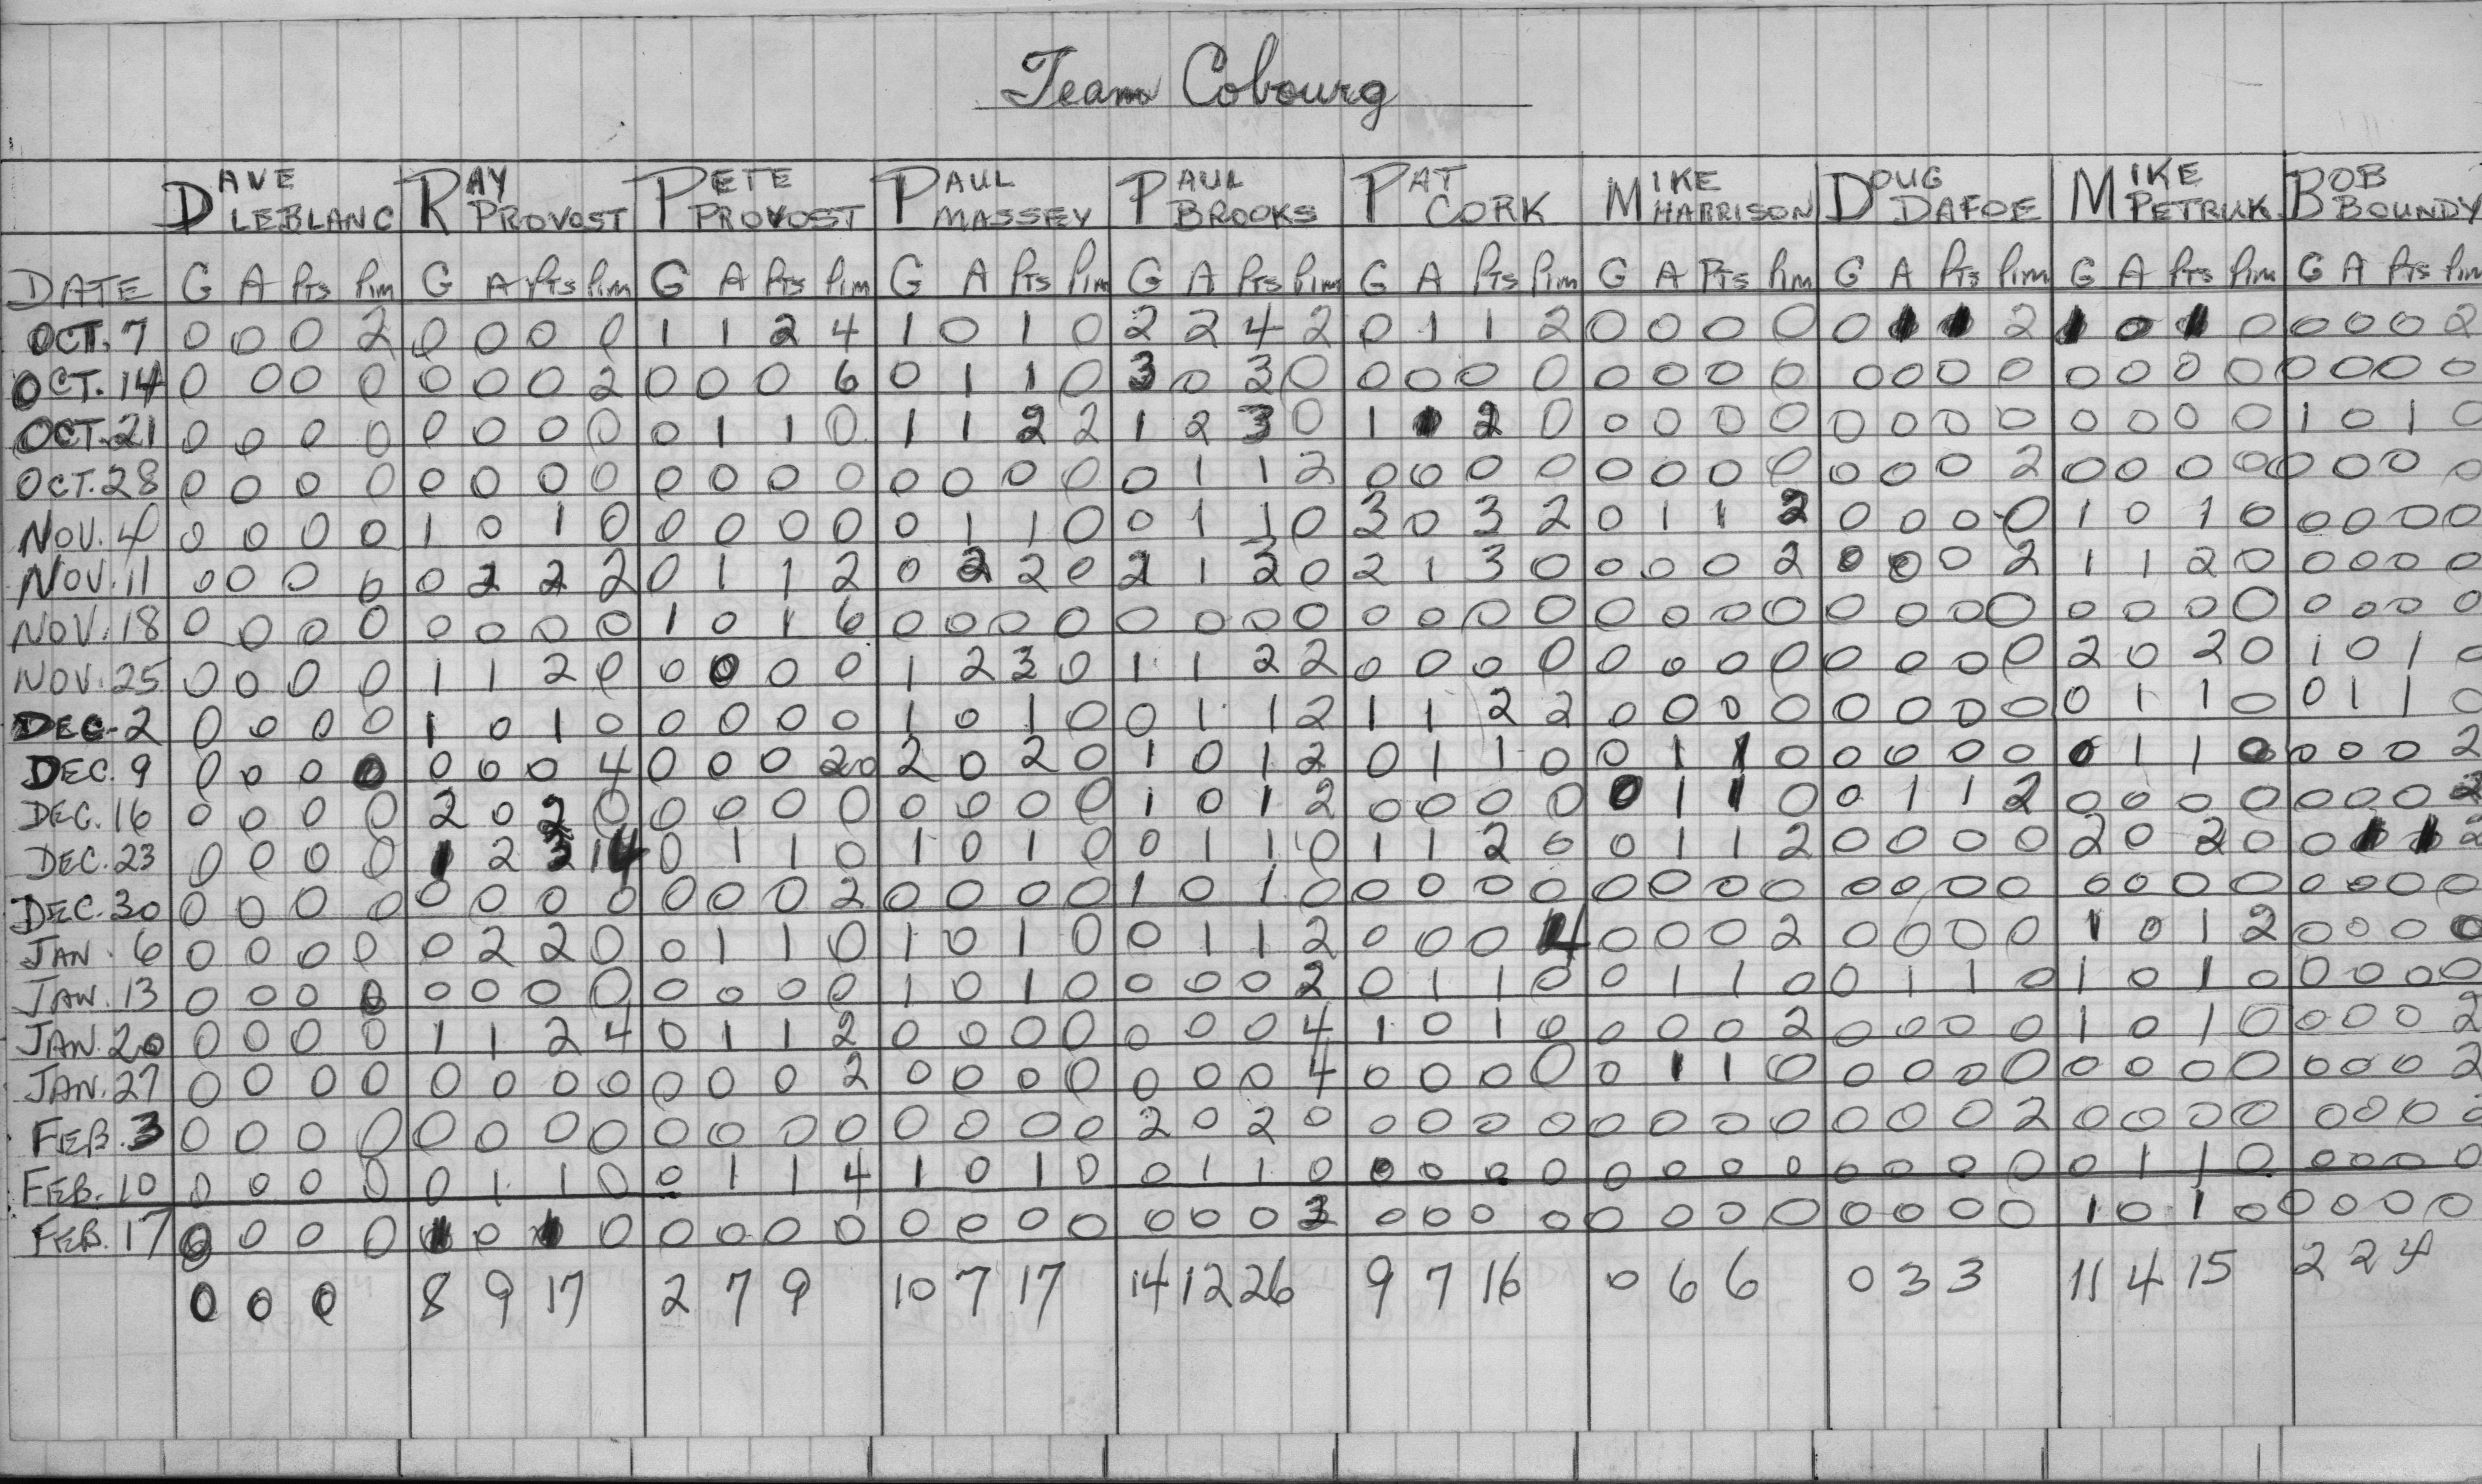 Team Cobourg
DAVE LEBLANC RAY PROVOST PETE PROVOST PAUL MASSEY PAUL BROOKS PAT CORK MIKE HARRISON DOUG DAFOE MIKE PETRUK BOB BOUNDY
DATE G A Pts Pim G A Pts Pim G A Pts Pim G A Pts Pim G A Pts Pim G A Pts Pim G A Pts Pim G A Pts Pim G A Pts Pim G A Pts Pim
OCT. 7 0 0 0 2 0 0 0 0 1 1 2 4 1 0 1 0 2 2 4 2 0 1 1 2 0 0 0 0 0 1 1 2 1 0 1 0 0 0 0 2
OCT. 14 0 0 0 0 0 0 0 2 0 0 0 6 0 1 1 0 3 0 3 0 0 0 0 0 0 0 0 0 0 0 0 0 0 0 0 0 0 0 0 0
OCT. 21 0 0 0 0 0 0 0 0 0 1 1 0 1 1 2 2 1 2 3 0 1 1 2 0 0 0 0 0 0 0 0 0 0 0 0 0 1 0 1 0
OCT. 28 0 0 0 0 0 0 0 0 0 0 0 0 0 0 0 0 0 1 1 2 0 0 0 0 0 0 0 0 0 0 0 2 0 0 0 0 0 0 0 0
NOV. 4 0 0 0 0 1 0 1 0 0 0 0 0 0 1 1 0 0 1 1 0 3 0 3 2 0 1 1 2 0 0 0 0 1 0 1 0 0 0 0 0
NOV. 11 0 0 0 0 0 2 2 2 0 1 1 2 0 2 2 0 2 1 3 0 2 1 3 0 0 0 0 2 0 0 0 2 1 1 2 0 0 0 0 0
NOV. 18 0 0 0 0 0 0 0 0 1 0 1 6 0 0 0 0 0 0 0 0 0 0 0 0 0 0 0 0 0 0 0 0 0 0 0 0 0 0 0 0
NOV. 25 0 0 0 0 1 1 2 0 0 0 0 0 1 2 3 0 1 1 2 2 0 0 0 0 0 0 0 0 0 0 0 0 2 0 2 0 1 0 1 0
DEC. 2 0 0 0 0 1 0 1 0 0 0 0 0 1 0 1 0 0 1 1 2 1 1 2 2 0 0 0 0 0 0 0 0 0 1 1 0 0 1 1 0
DEC. 9 0 0 0 0 0 0 0 4 0 0 0 20 2 0 2 0 1 0 1 2 0 1 1 0 0 1 1 0 0 0 0 0 0 1 1 0 0 0 0 2
DEC. 16 0 0 0 0 2 0 2 0 0 0 0 0 0 0 0 0 1 0 1 2 0 0 0 0 0 1 1 0 0 1 1 2 0 0 0 0 0 0 0 2
DEC. 23 0 0 0 0 1 2 3 14 0 1 1 0 1 0 1 0 0 1 1 0 1 1 2 0 0 1 1 2 0 0 0 0 2 0 2 0 0 1 1 2
DEC. 30 0 0 0 0 0 0 0 0 0 0 0 2 0 0 0 0 1 0 1 0 0 0 0 0 0 0 0 0 0 0 0 0 0 0 0 0 0 0 0 0
JAN. 6 0 0 0 0 0 2 2 0 0 1 1 0 1 0 1 0 0 1 1 2 0 0 0 4 0 0 0 2 0 0 0 0 1 0 1 2 0 0 0 0
JAN. 13 0 0 0 0 0 0 0 0 0 0 0 0 1 0 1 0 0 0 0 2 0 1 1 0 0 1 1 0 0 1 1 0 1 0 1 0 0 0 0 0
JAN. 20 0 0 0 0 1 1 2 4 0 1 1 2 0 0 0 0 0 0 0 4 1 0 1 0 0 0 0 2 0 0 0 0 1 0 1 0 0 0 0 2
JAN. 27 0 0 0 0 0 0 0 0 0 0 0 2 0 0 0 0 0 0 0 4 0 0 0 0 0 1 1 0 0 0 0 0 0 0 0 0 0 0 0 2
FEB. 3 0 0 0 0 0 0 0 0 0 0 0 0 0 0 0 0 2 0 2 0 0 0 0 0 0 0 0 0 0 0 0 2 0 0 0 0 0 0 0
FEB. 10 0 0 0 0 0 1 1 0 0 1 1 4 1 0 1 0 0 1 1 0 0 0 0 0 0 0 0 0 0 0 0 0 0 1 1 0 0 0 0 0
FEB. 17 0 0 0 0 1 0 1 0 0 0 0 0 0 0 0 0 0 0 0 0 0 0 0 0 0 0 0 0 0 0 0 1 0 1 0 0 0 0 0
0 0 0 8 9 17 2 7 9 10 7 17 14 12 26 9 7 16 0 6 6 0 3 3 11 4 15 2 2 4